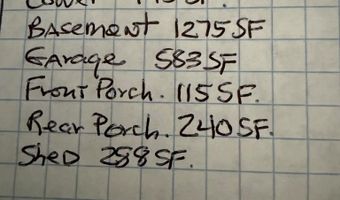 Basement 1275 SF
Garage 583 SF
Front Porch. 115 SF.
Rear Porch. 240 SF.
Shed 288 SF.